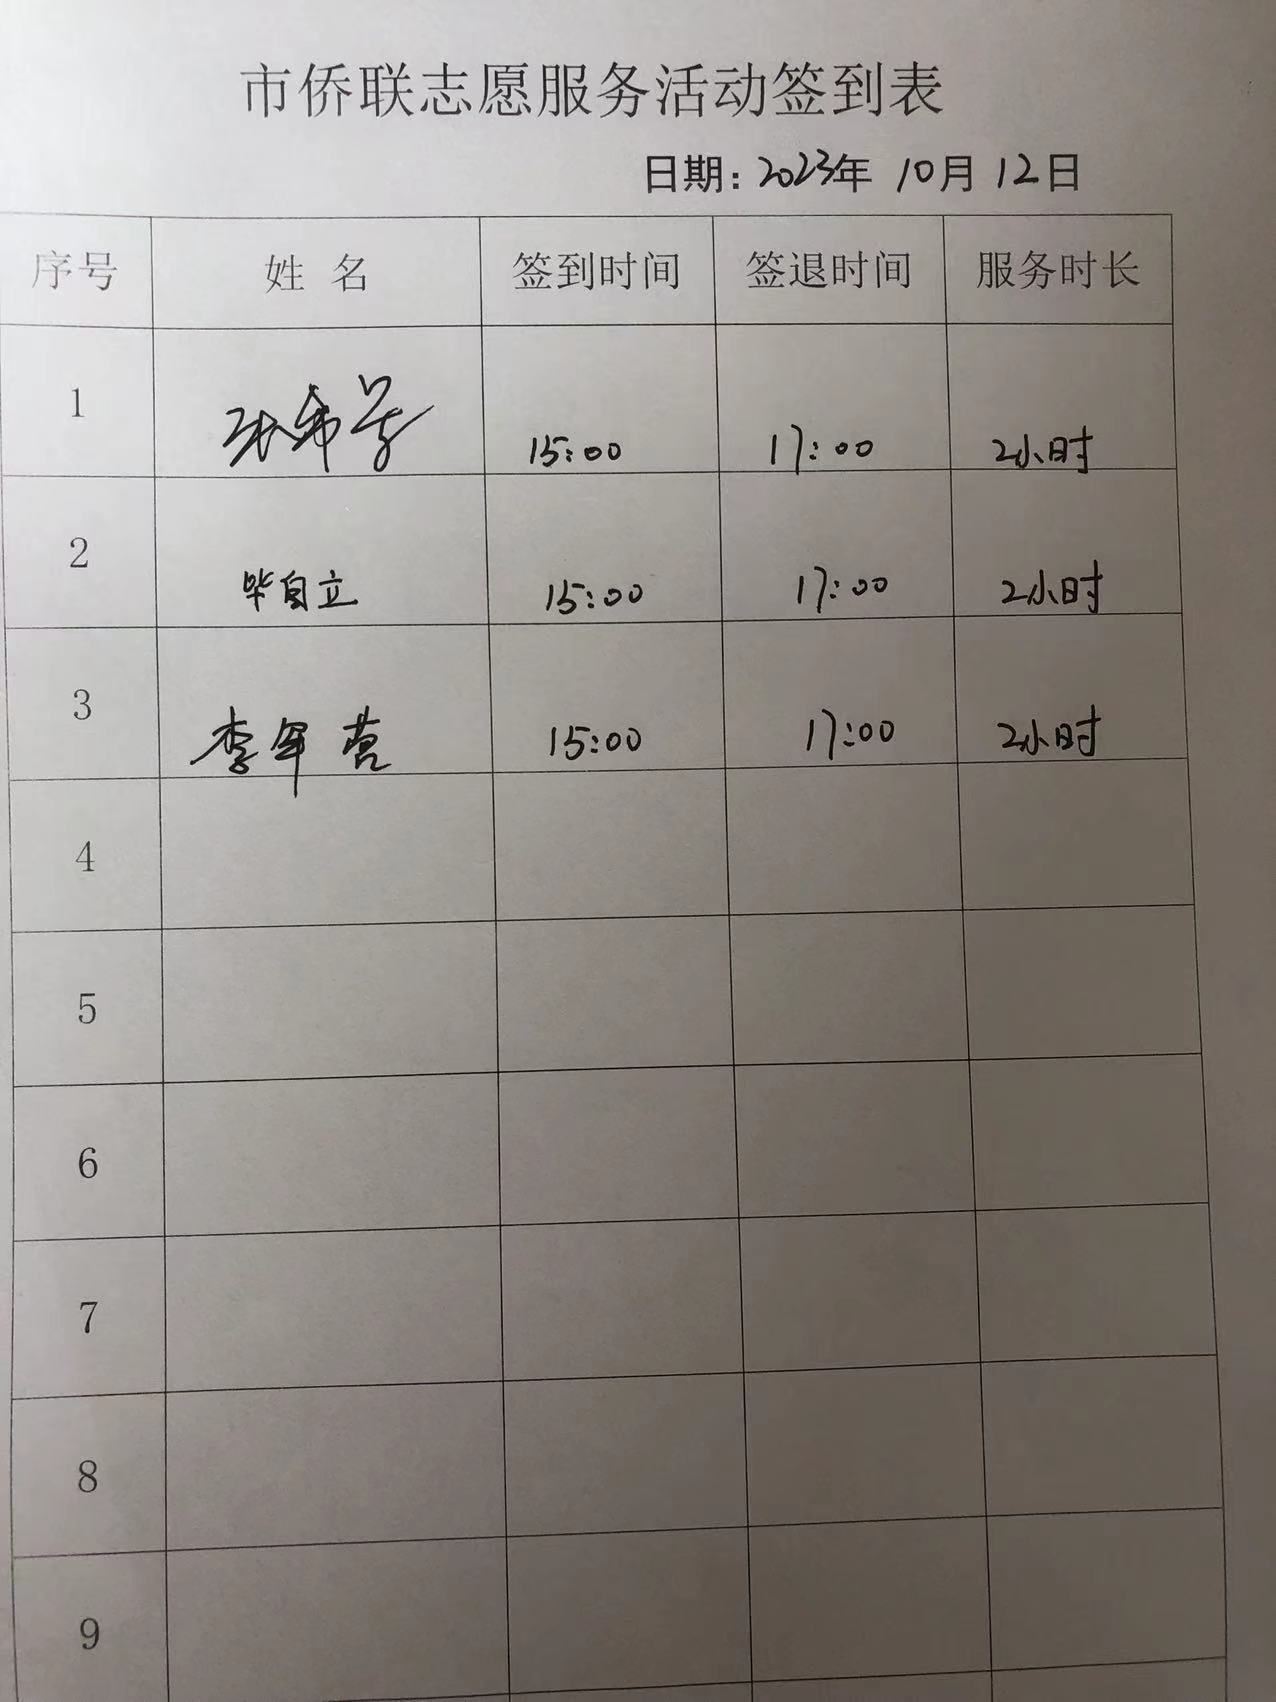 市侨联志愿服务活动签到表
日期: 2023年 10月 12日
序号 姓 名 签到时间 签退时间 服务时长
1 15:00 17:00 2小时
2 毕自立 15:00 17:00 2小时
3 李军营 15:00 17:00 2小时
4
5
6
7
8
9